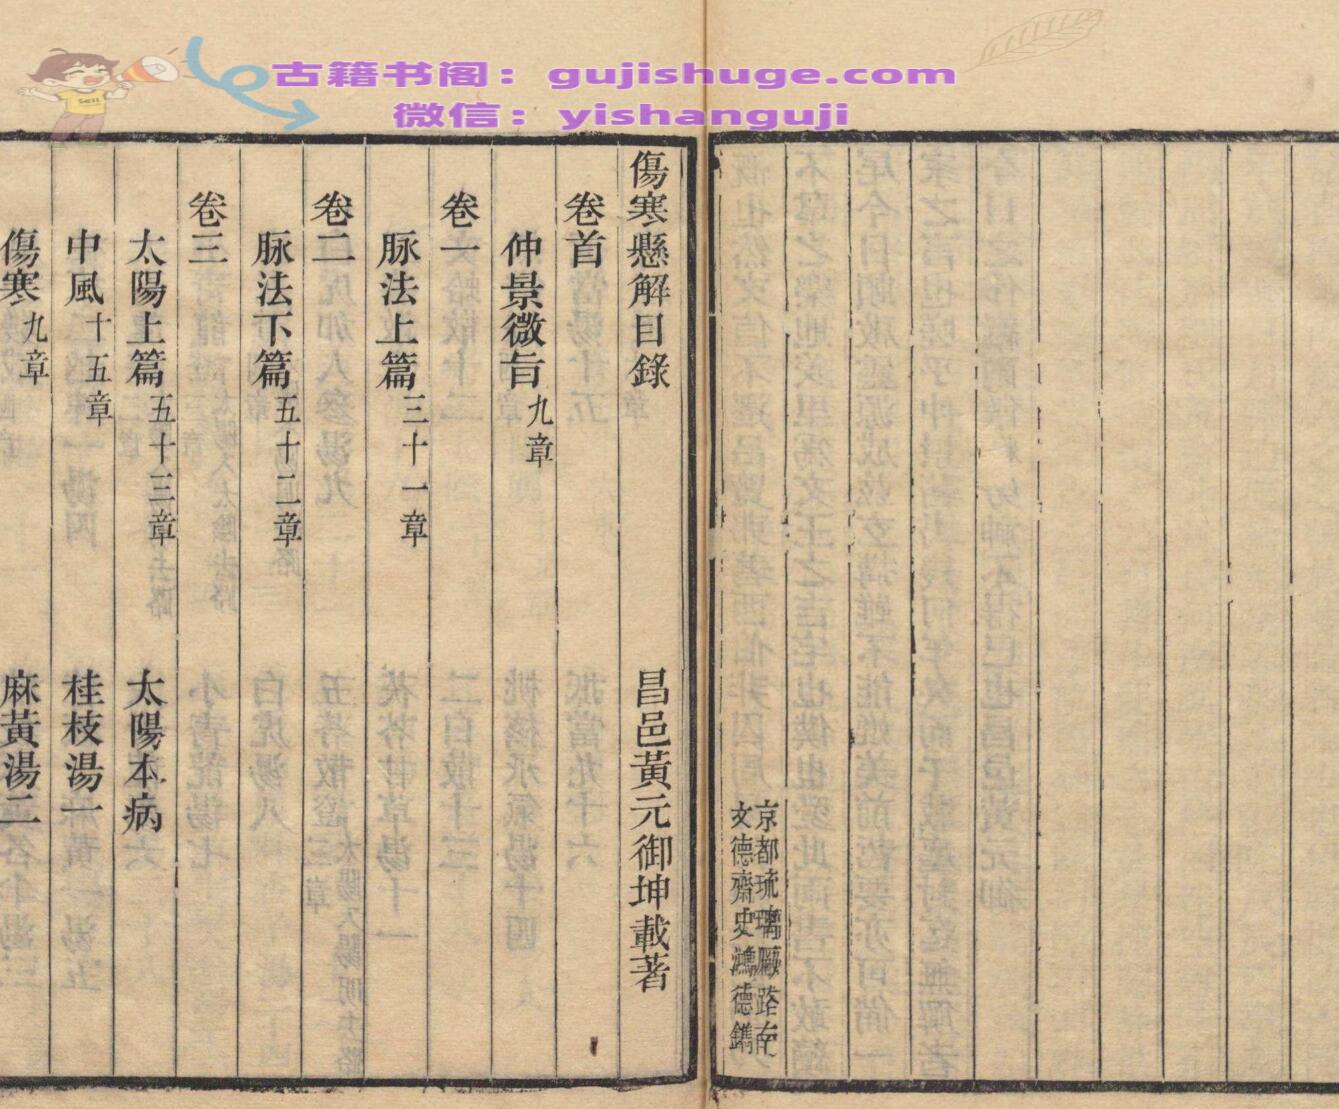 古籍书阁：gujishuge.com
微信：yishanguji
京都琉璃厰路南
文德齋史鴻德鐫
傷寒懸解目錄 昌邑黃元御坤載著
卷首
仲景微旨九章
卷一
脉法上篇三十一章
卷二
脉法下篇五十二章
卷三
太陽上篇五十三章 太陽本病
中風十五章 桂枝湯一
傷寒九章 麻黃湯二